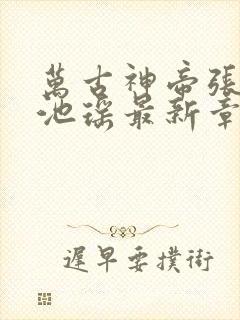 萬古神帝張
池瑤最新章
遲早要撲街